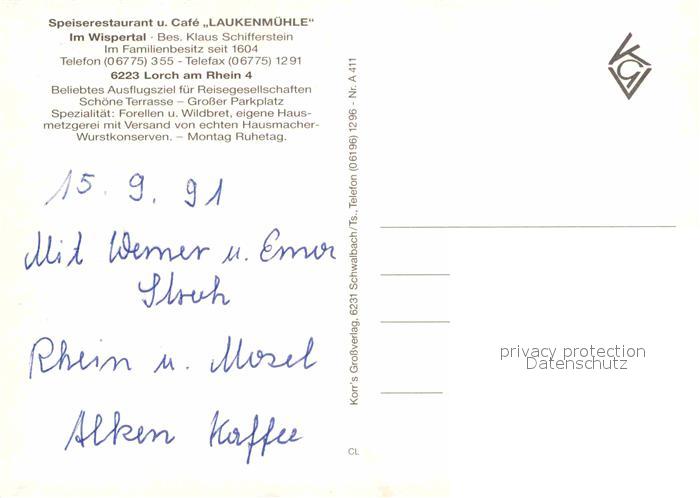 Speiserestaurant u. Café „LAUKENMÜHLE"
Im Wispertal · Bes. Klaus Schifferstein
Im Familienbesitz seit 1604
Telefon (06775) 355 - Telefax (06775) 1291
6223 Lorch am Rhein 4
Beliebtes Ausflugsziel für Reisegesellschaften
Schöne Terrasse – Großer Parkplatz
Spezialität: Forellen u. Wildbret, eigene Haus-
metzgerei mit Versand von echten Hausmacher-
Wurstkonserven. – Montag Ruhetag.
15. 9. 91
Mit Werner u. Erna
Stroh
Rhein u. Mosel
Alken Kaffee
Korr's Großverlag, 6231 Schwalbach/Ts., Telefon (06196) 1296 - Nr. A 411
CL
KGV
privacy protection
Datenschutz